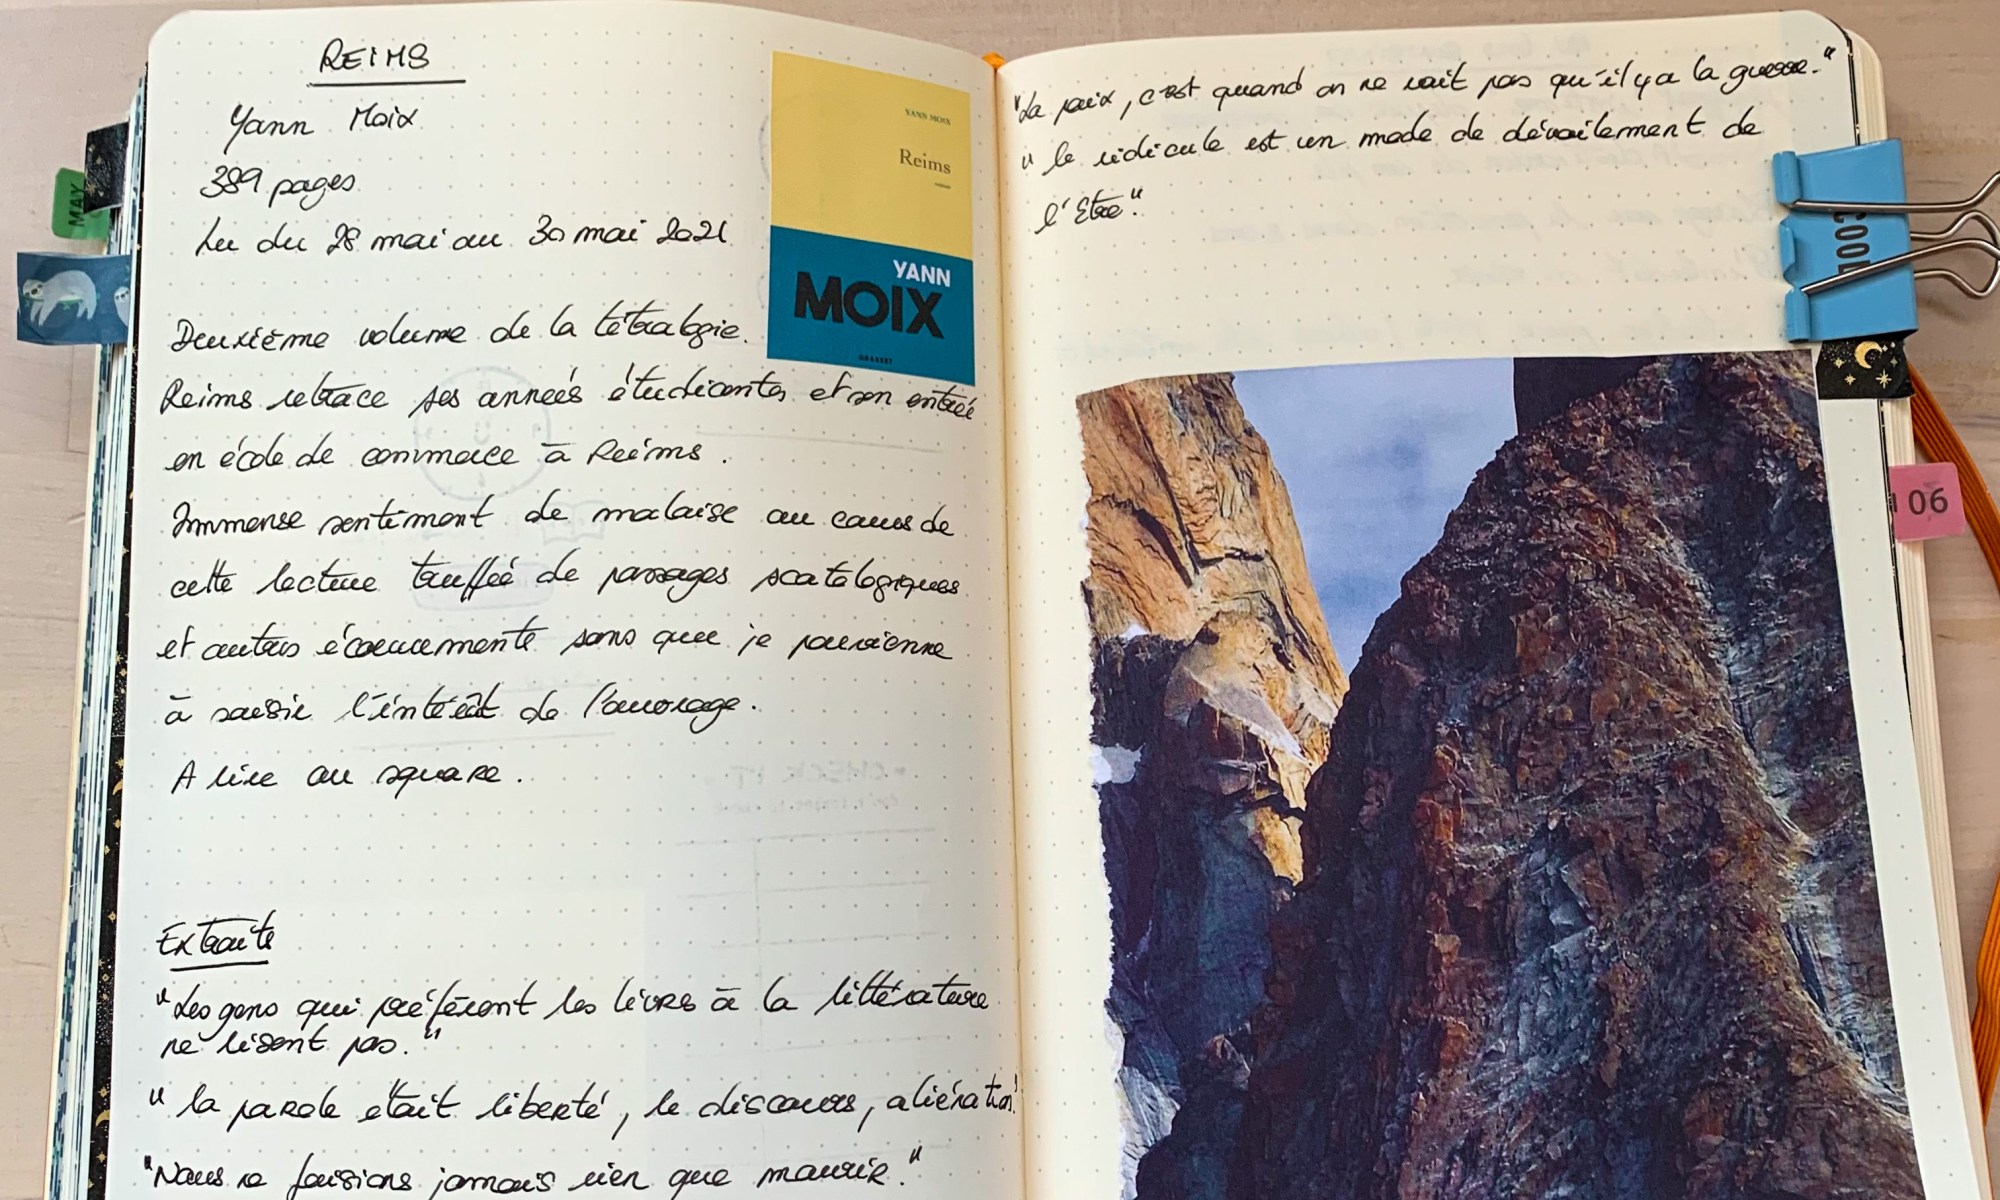 REIMS
Yann Moix
389 pages
Lu du 28 mai au 30 mai 2021
YANN MOIX
Reims
YANN
MOIX
GRASSET
Deuxième volume de la tétralogie.
Reims retrace ses années étudiantes et son entrée
en école de commerce à Reims.
Immense sentiment de malaise au cours de
cette lecture touffée de passages scatologiques
et autres écoeurements sans que je parvienne
à saisir l'intérêt de l'ouvrage.
A lire au square.
Extraits
"Les gens qui préfèrent les livres à la littérature
ne lisent pas."
"la parole était liberté, le discours, aliénation"
"Nous ne faisions jamais rien que mourir."
"La paix, c'est quand on ne voit pas qu'il y a la guerre."
"le ridicule est un mode de dévoilement de
l'Etre."
MAY
COOL
06